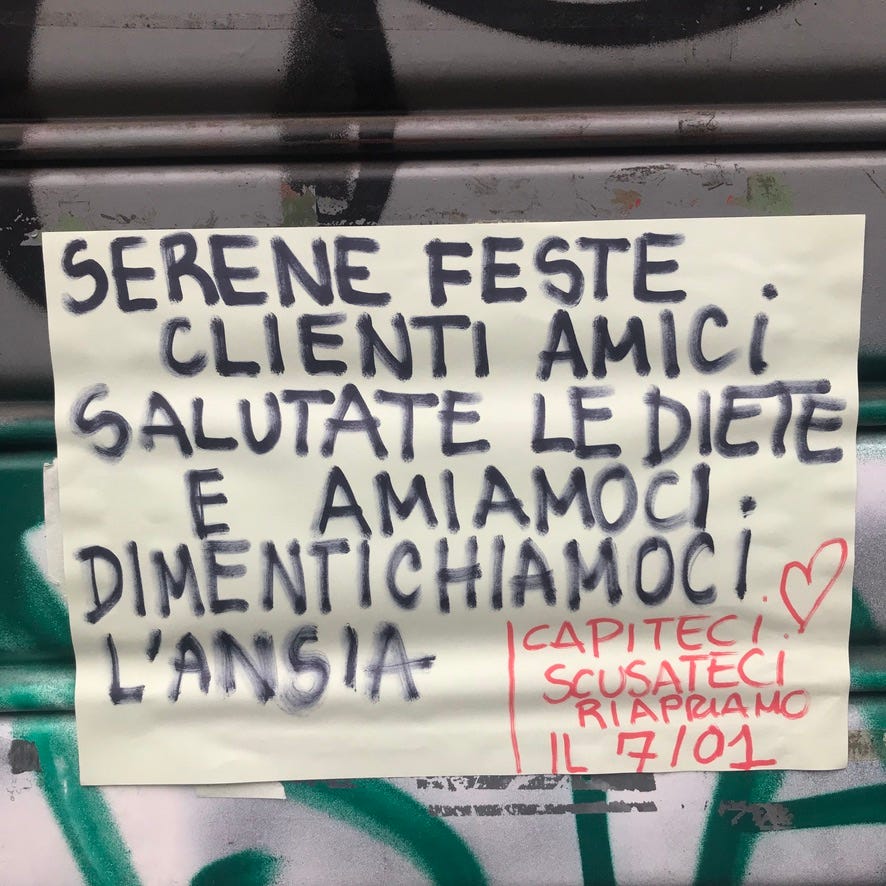 SERENE FESTE
CLIENTI AMICi
SALUTATE LE DIETE
E AMIAMOCI.
DIMENTICHIAMOCi
L'ANSIA
CAPITECi.
SCUSATECI
RIAPRIAMO
IL 7/01